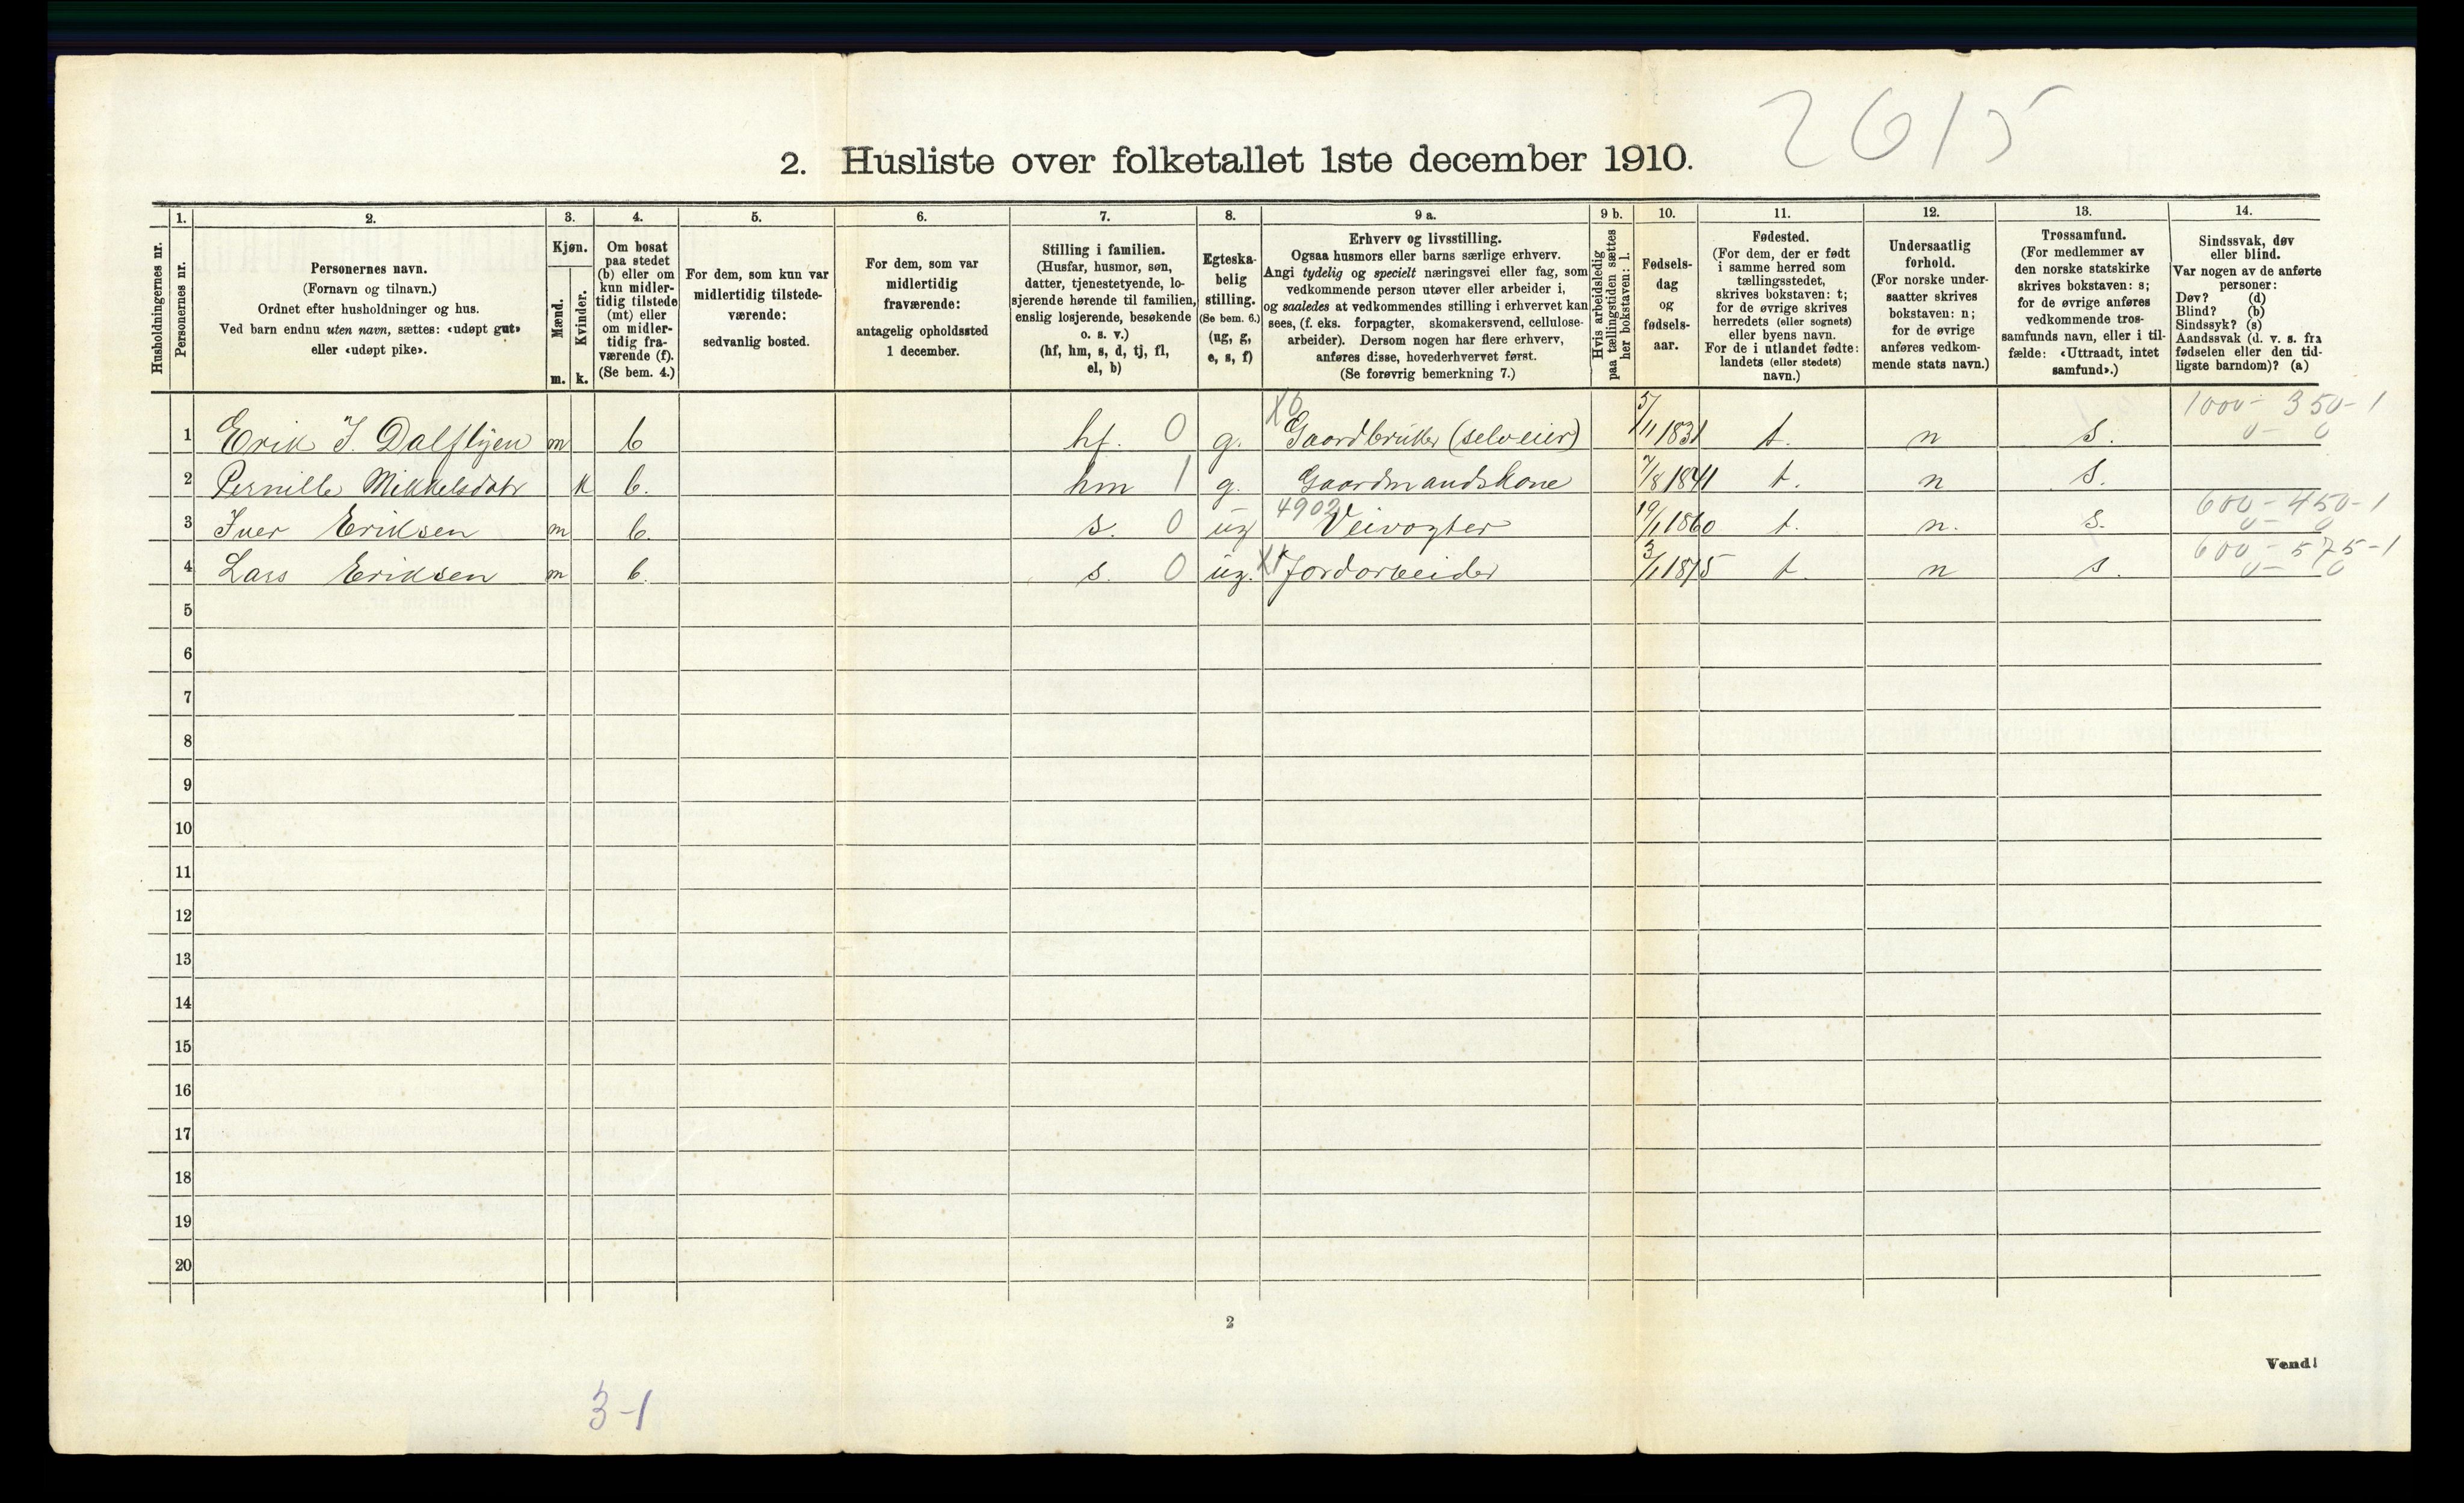 2615
2. Husliste over folketallet 1ste december 1910.
Husholdningernes nr.
1. 2. 3. 4. 5. 6. 7. 8. 9 a. 9 b. 10. 11. 12. 13. 14.
Personernes nr.
Personernes navn.
(Fornavn og tilnavn.)
Ordnet efter husholdninger og hus.
Ved barn endnu uten navn, sættes: «udøpt gut»
eller «udøpt pike».
Kjøn.
Mænd.
Kvinder.
m. k.
Om bosat
paa stedet
(b) eller om
kun midler-
tidig tilstede
(mt) eller
om midler-
tidig fra-
værende (f).
(Se bem. 4.)
For dem, som kun var
midlertidig tilstede-
værende:
sedvanlig bosted.
For dem, som var
midlertidig
fraværende:
antagelig opholdssted
1 december.
Stilling i familien.
(Husfar, husmor, søn,
datter, tjenestetyende, lo-
sjerende hørende til familien,
enslig losjerende, besøkende
o. s. v.)
(hf, hm, s, d, tj, fl,
el, b)
Egteska-
belig
stilling.
(Se bem. 6.)
(ug, g,
e, s, f)
Erhverv og livsstilling.
Ogsaa husmors eller barns særlige erhverv.
Angi tydelig og specielt næringsvei eller fag, som
vedkommende person utøver eller arbeider i,
og saaledes at vedkommendes stilling i erhvervet kan
sees, (f. eks. forpagter, skomakersvend, cellulose-
arbeider). Dersom nogen har flere erhverv,
anføres disse, hovederhvervet først.
(Se forøvrig bemerkning 7.)
Hvis arbeidsledig
paa tællingstiden sættes
her bokstaven: l.
Fødsels-
dag
og
fødsels-
aar.
Fødested.
(For dem, der er født
i samme herred som
tællingsstedet,
skrives bokstaven: t;
for de øvrige skrives
herredets (eller sognets)
eller byens navn.
For de i utlandet fødte:
landets (eller stedets)
navn.)
Undersaatlig
forhold.
(For norske under-
saatter skrives
bokstaven: n;
for de øvrige
anføres vedkom-
mende stats navn.)
Trossamfund.
(For medlemmer av
den norske statskirke
skrives bokstaven: s;
for de øvrige anføres
vedkommende tros-
samfunds navn, eller i til-
fælde: «Uttraadt, intet
samfund».)
Sindssvak, døv
eller blind.
Var nogen av de anførte
personer:
Døv? (d)
Blind? (b)
Sindssyk? (s)
Aandssvak (d. v. s. fra
fødselen eller den tid-
ligste barndom)? (a)
X6 1000 - 350 - 1
1 Erik I. Dalflyen m b hf. 0 g. Gaardbruker (selveier) 5/11 1831 t. n s. 0 - 0
2 Pernille Mikkelsdatr k b. hm 1 g. Gaardmandskone 7/8 1841 t. n s.
4902 600 - 450 - 1
3 Iver Eriksen m b. s. 0 ug Veivogter 19/1 1860 t. n. s. 0 - 0
600 - 575 - 1
4 Lars Eriksen m b. s. 0 ug. Jordarbeider 3/1 1875 t. n s. 0 - 0
5
6
7
8
9
10
11
12
13
14
15
16
17
18
19
20
2
Vend!
3-1